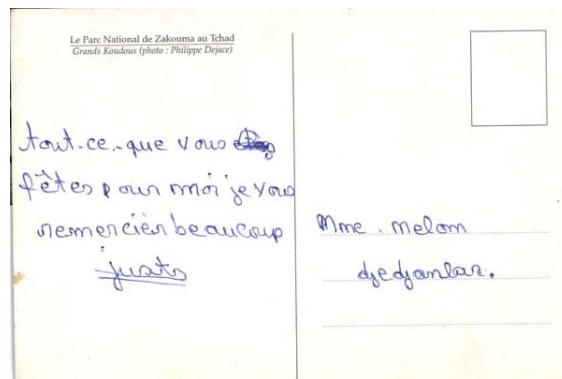 Le Parc National de Zakouma au Tchad
Grands Koudous (photo : Philippe Dejace)
tout-ce-que vous
fêtes pour moi je vous
remercièr beaucoup
justs
Mme. Melom
djedjanlar.